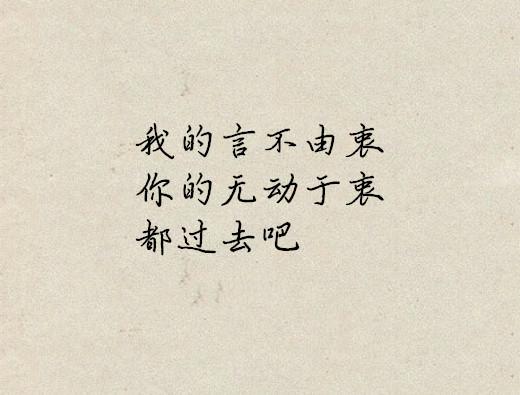 我的言不由衷
你的无动于衷
都过去吧